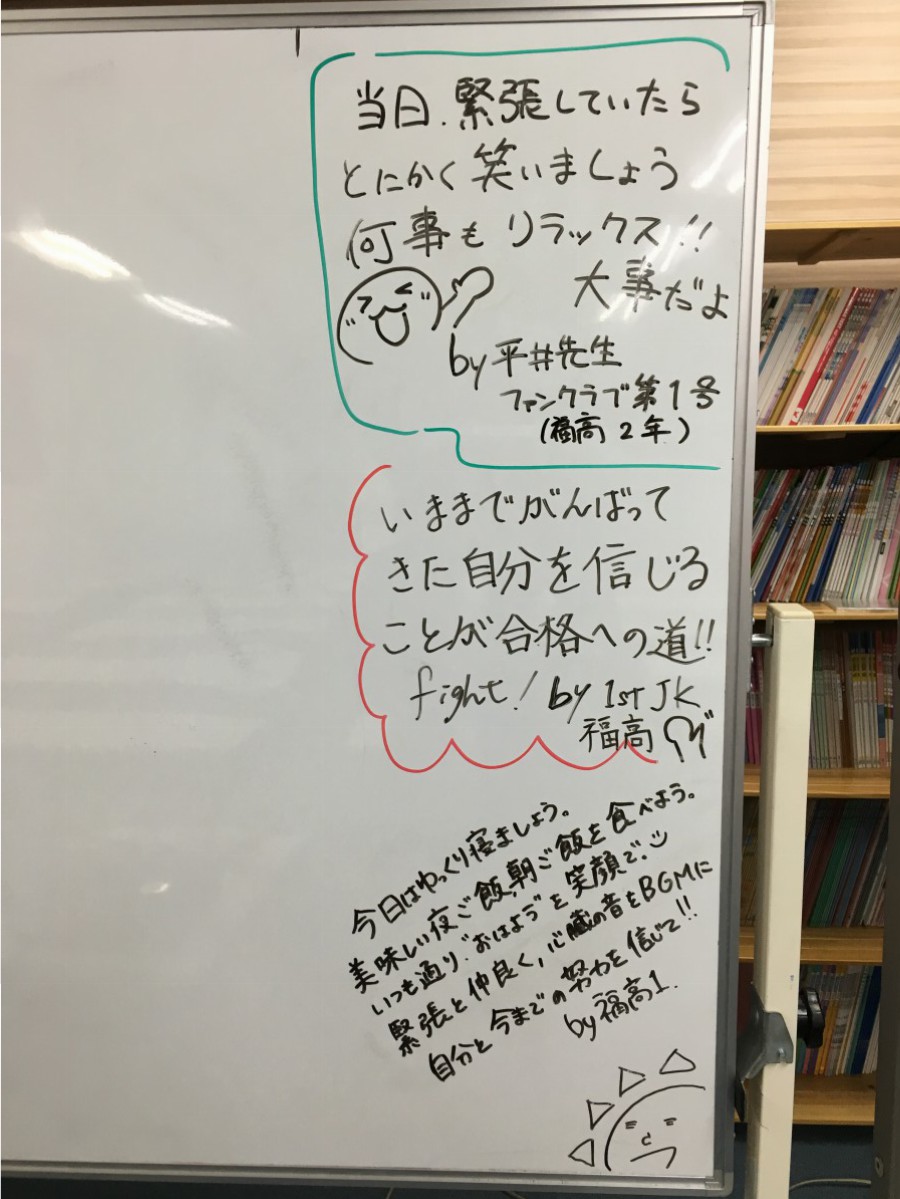 当日、緊張していたら
とにかく笑いましょう
何事もリラックス!!
大事だよ
by 平井先生
ファンクラブ第1号
(福高2年)
いままでがんばって
きた自分を信じる
ことが合格への道!!
fight! by 1st JK
福高
今日はゆっくり寝ましょう。
美味しい夜ご飯、朝ご飯を食べよう。
いつも通り"おはよう"を笑顔で。
緊張と仲良く、心臓の音をBGMに
自分と今までの努力を信じて!!
by 福高1.